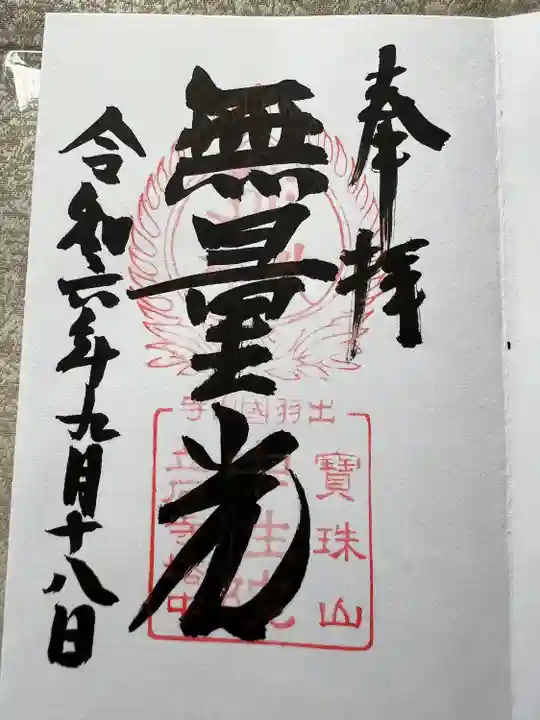 奉拝
無量光
令和六年九月十八日
出羽國山寺
寶珠山
立石寺塔中